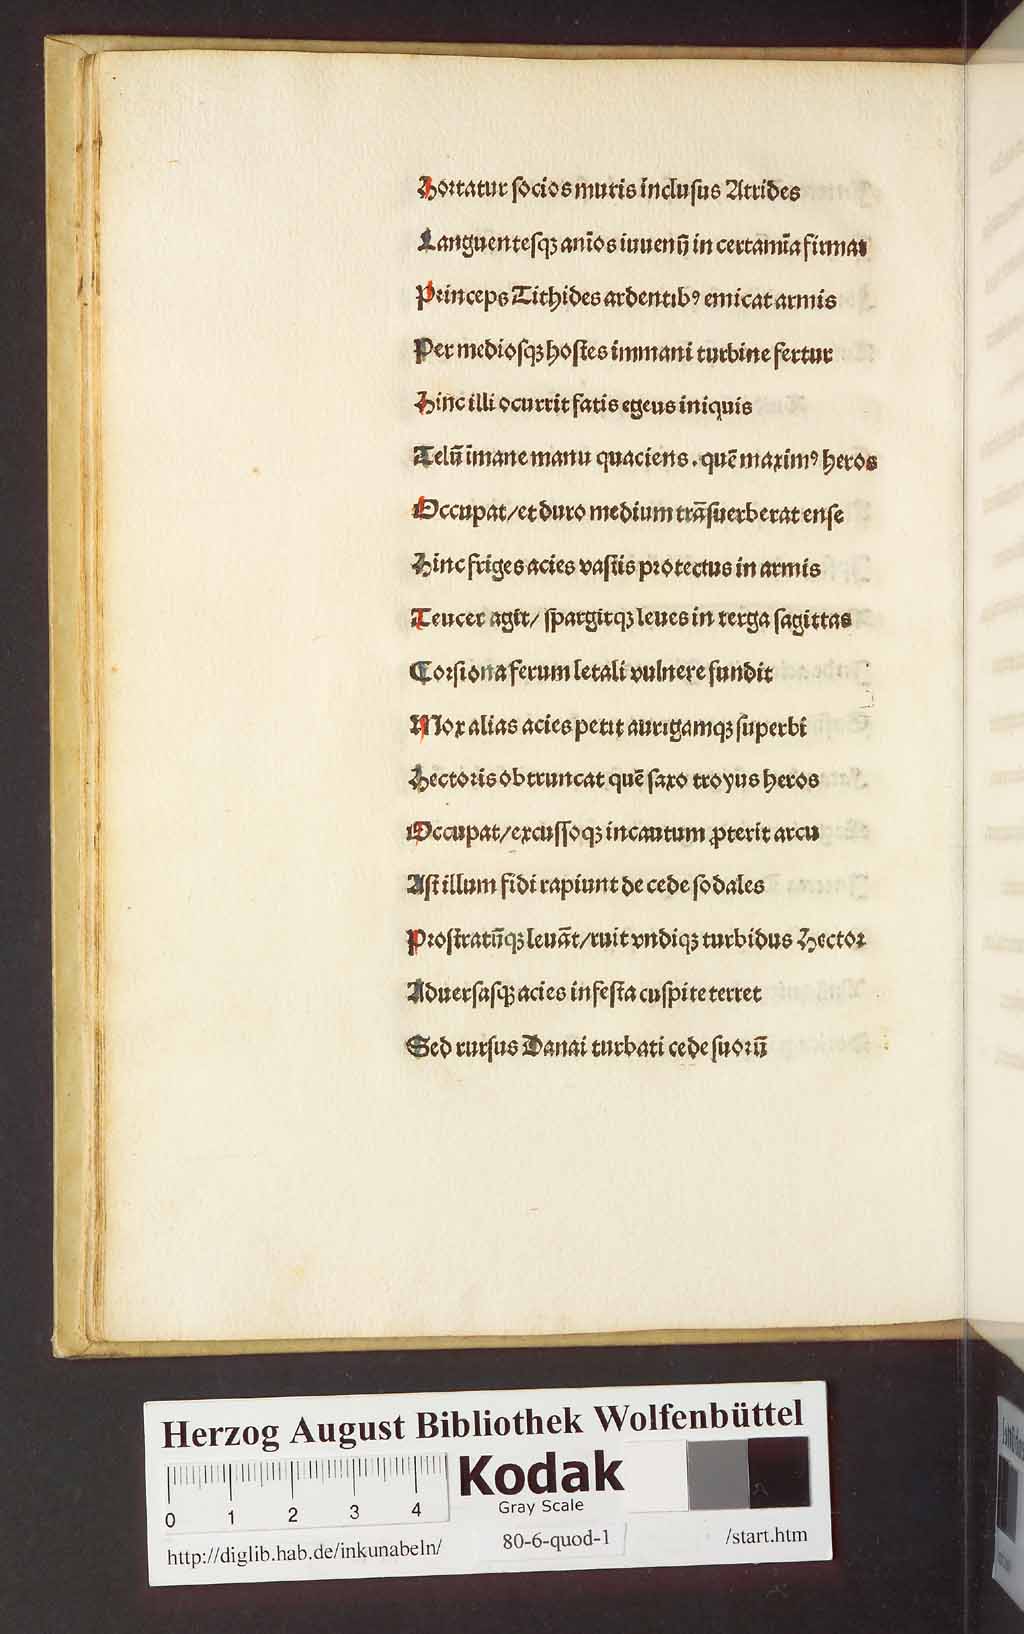 Hortatur ſocios muris incluſus Atrides
Languenteſqꝫ anīos iuuenū in certamīa firmat
Princeps Tithides ardentibꝰ emicat armis
Per medioſqꝫ hoſtes immani turbine fertur
Hinc illi ocurrit fatis egeus iniquis
Telū īmane manu quaciens . quē maximꝰ heros
Occupat/et duro medium trāſuerberat enſe
Hinc friges acies vaſtis protectus in armis
Teucer agit/ ſpargitqꝫ leues in terga ſagittas
Corſiona ferum letali vulnere fundit
Mox alias acies petit aurigamqꝫ ſuperbi
Hectoris obtruncat quē ſaxo troyus heros
Occupat/excuſſoqꝫ incautum ꝓterit arcu
Aſt illum fidi rapiunt de cede ſodales
Proſtratūqꝫ leuāt/ruit vndiqꝫ turbidus Hector
Aduerſaſqꝫ acies infeſta cuſpite terret
Sed rurſus Danai turbati cede ſuorū
Herzog August Bibliothek Wolfenbüttel
Kodak
Gray Scale
0 1 2 3 4
http://diglib.hab.de/inkunabeln/ 80-6-quod-1 /start.htm